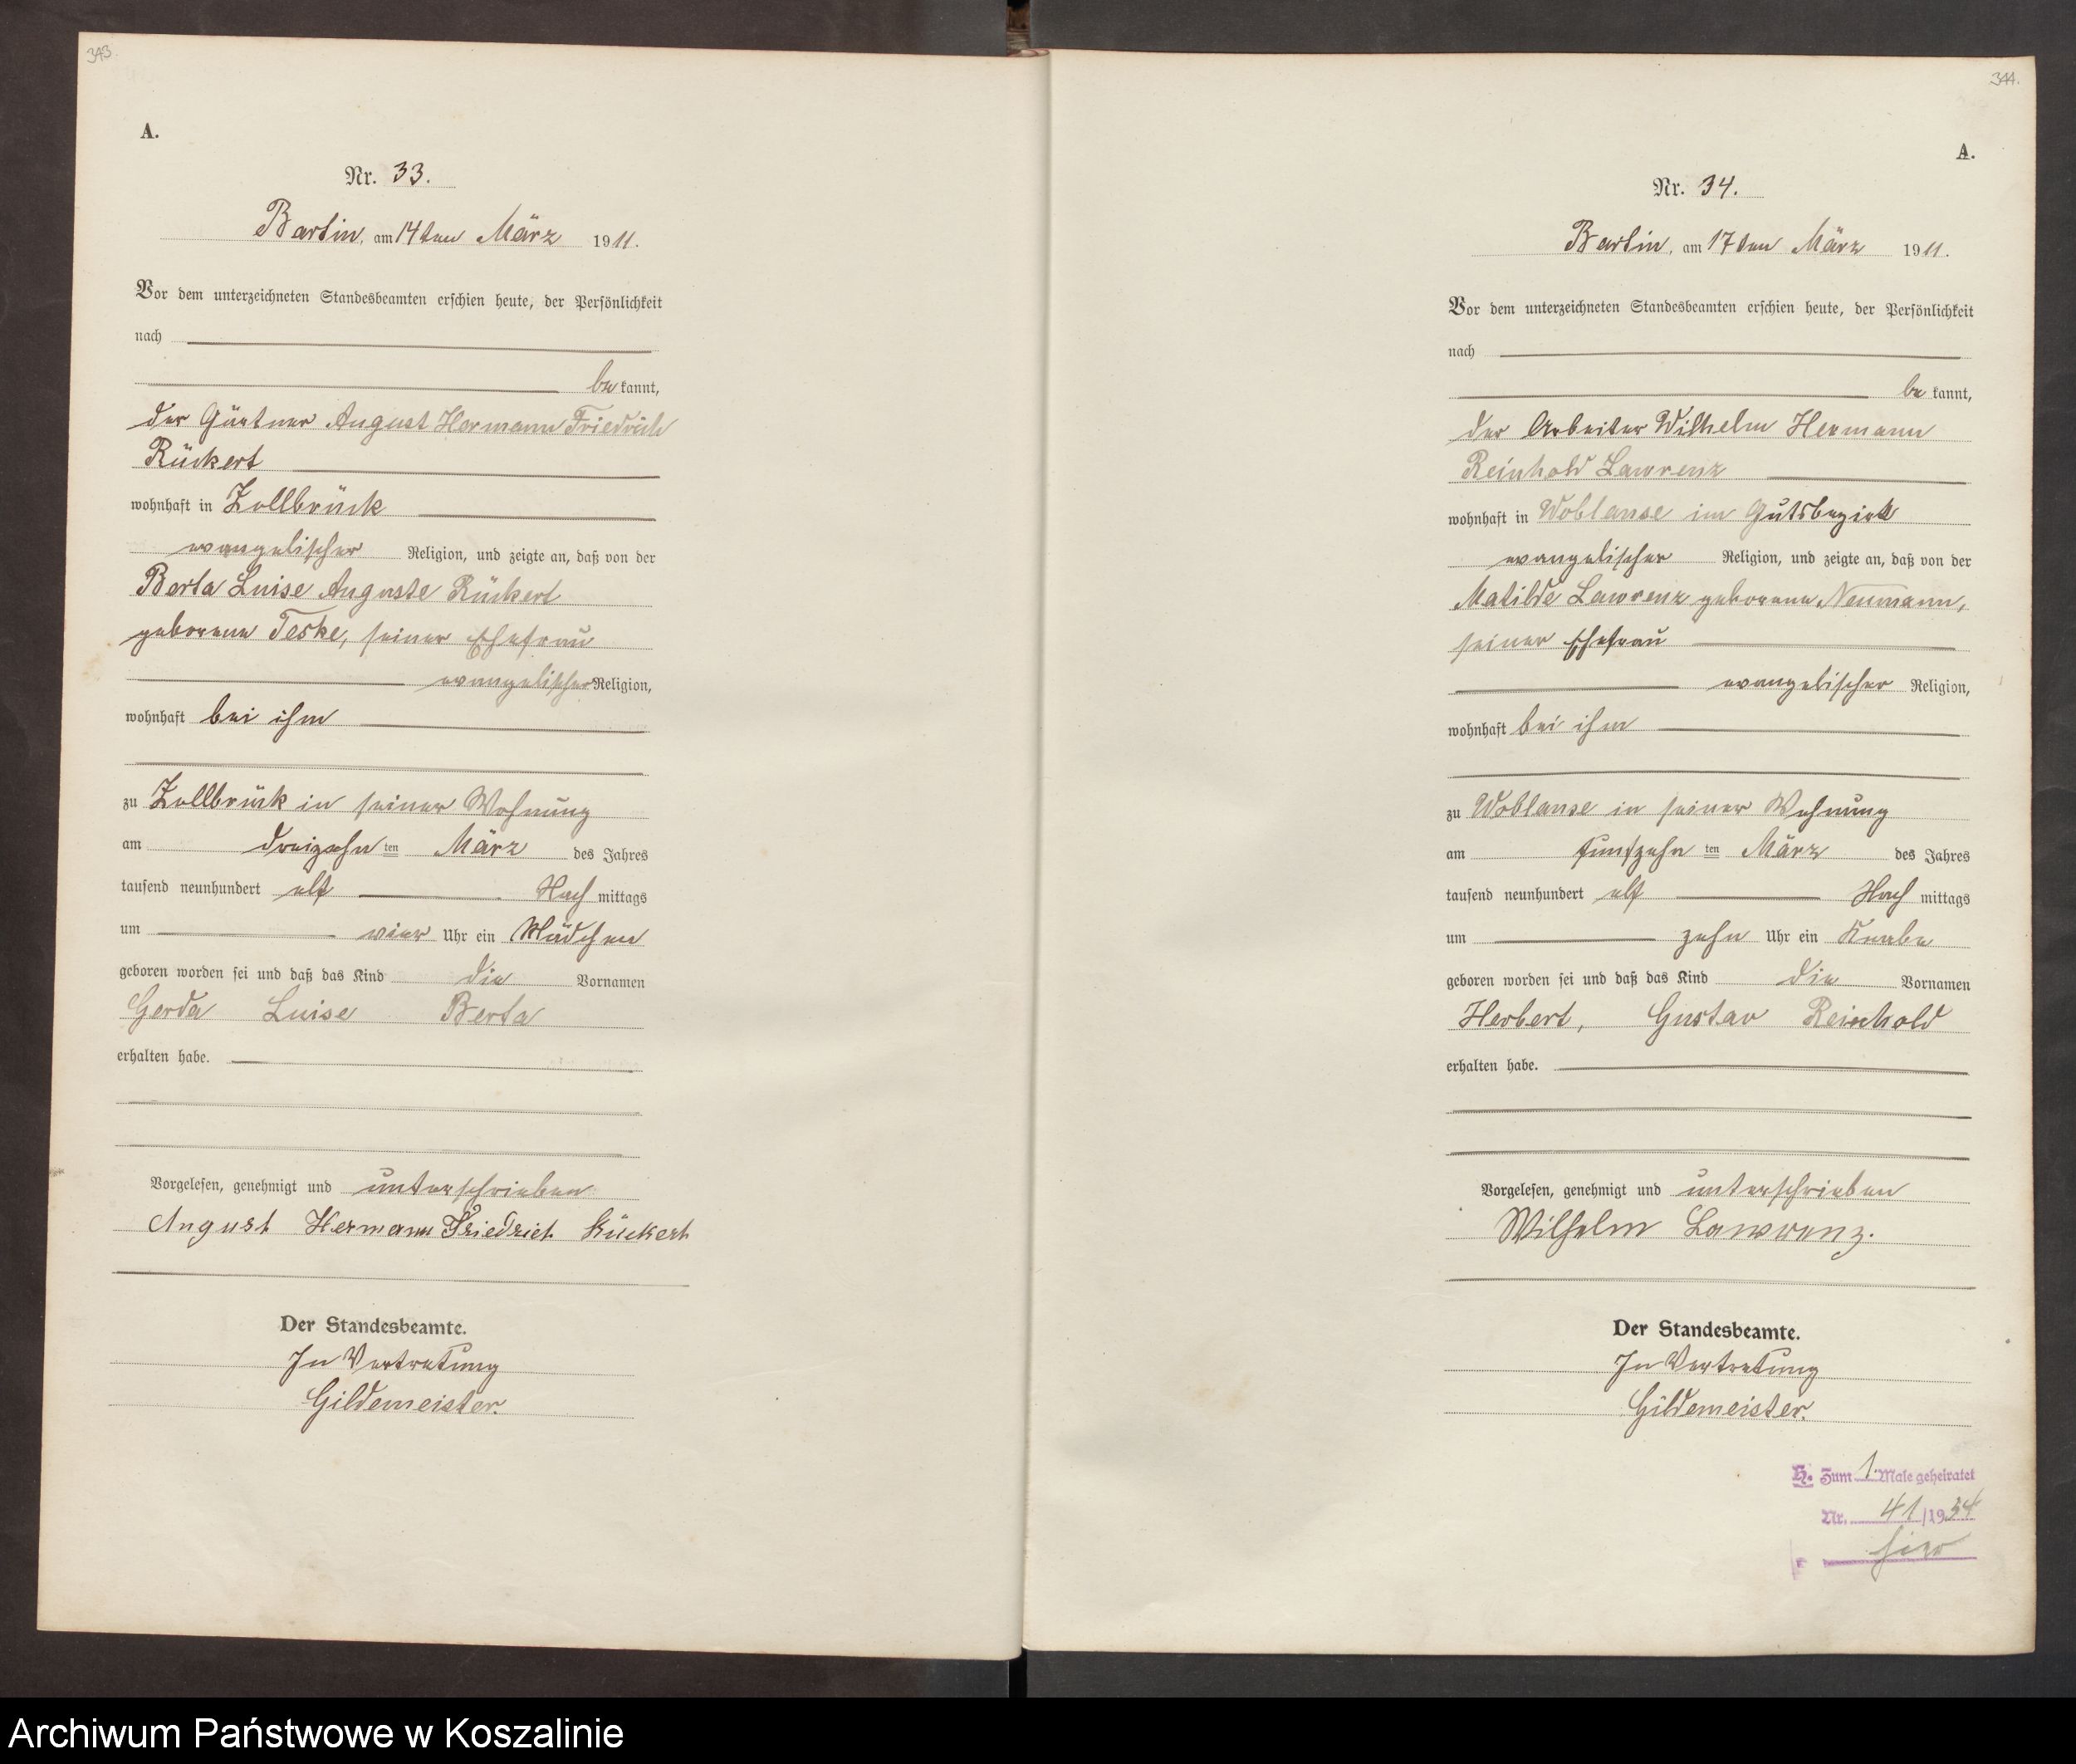 343.
A.
Nr. 33.
Bartin, am 14ten März 1911.
Vor dem unterzeichneten Standesbeamten erschien heute, der Persönlichkeit
nach
bekannt,
der Gärtner August Hermann Friedrich
Rückert
wohnhaft in Zollbrück
evangelischer Religion, und zeigte an, daß von der
Berta Luise Auguste Rückert
geborene Teske, seiner Ehefrau
evangelischer Religion,
wohnhaft bei ihm
zu Zollbrück in seiner Wohnung
am dreizehnten März des Jahres
tausend neunhundert elf Nachmittags
um vier Uhr ein Mädchen
geboren worden sei und daß das Kind die Vornamen
Gerda Luise Berta
erhalten habe.
Vorgelesen, genehmigt und unterschrieben
August Hermann Friedrich Rückert
Der Standesbeamte.
In Vertretung
Gildemeister.
344.
A.
Nr. 34.
Bartin, am 17ten März 1911.
Vor dem unterzeichneten Standesbeamten erschien heute, der Persönlichkeit
nach
bekannt,
der Arbeiter Wilhelm Hermann
Reinhold Lawrenz
wohnhaft in Woblanse im Gutsbezirk
evangelischer Religion, und zeigte an, daß von der
Matilde Lawrenz geborene Neumann,
seiner Ehefrau
evangelischer Religion,
wohnhaft bei ihm
zu Woblanse in seiner Wohnung
am fünfzehnten März des Jahres
tausend neunhundert elf Nachmittags
um zehn Uhr ein Knabe
geboren worden sei und daß das Kind die Vornamen
Herbert, Gustav Reinhold
erhalten habe.
Vorgelesen, genehmigt und unterschrieben
Wilhelm Lawrenz.
Der Standesbeamte.
In Vertretung
Gildemeister.
H. Zum 1. Male geheiratet
Nr. 41/1934
hier
Archiwum Państwowe w Koszalinie